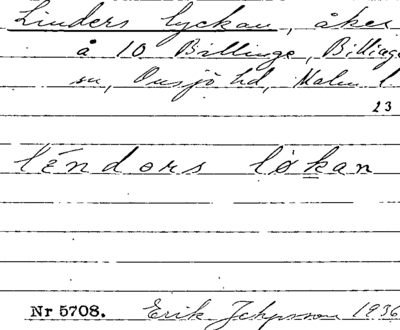 Linders lyckan, åker
å 10 Billinge, Billinge
sn, Onsjö hd, Malm l
23
lẽndors løkan
Nr 5708. Erik 1936